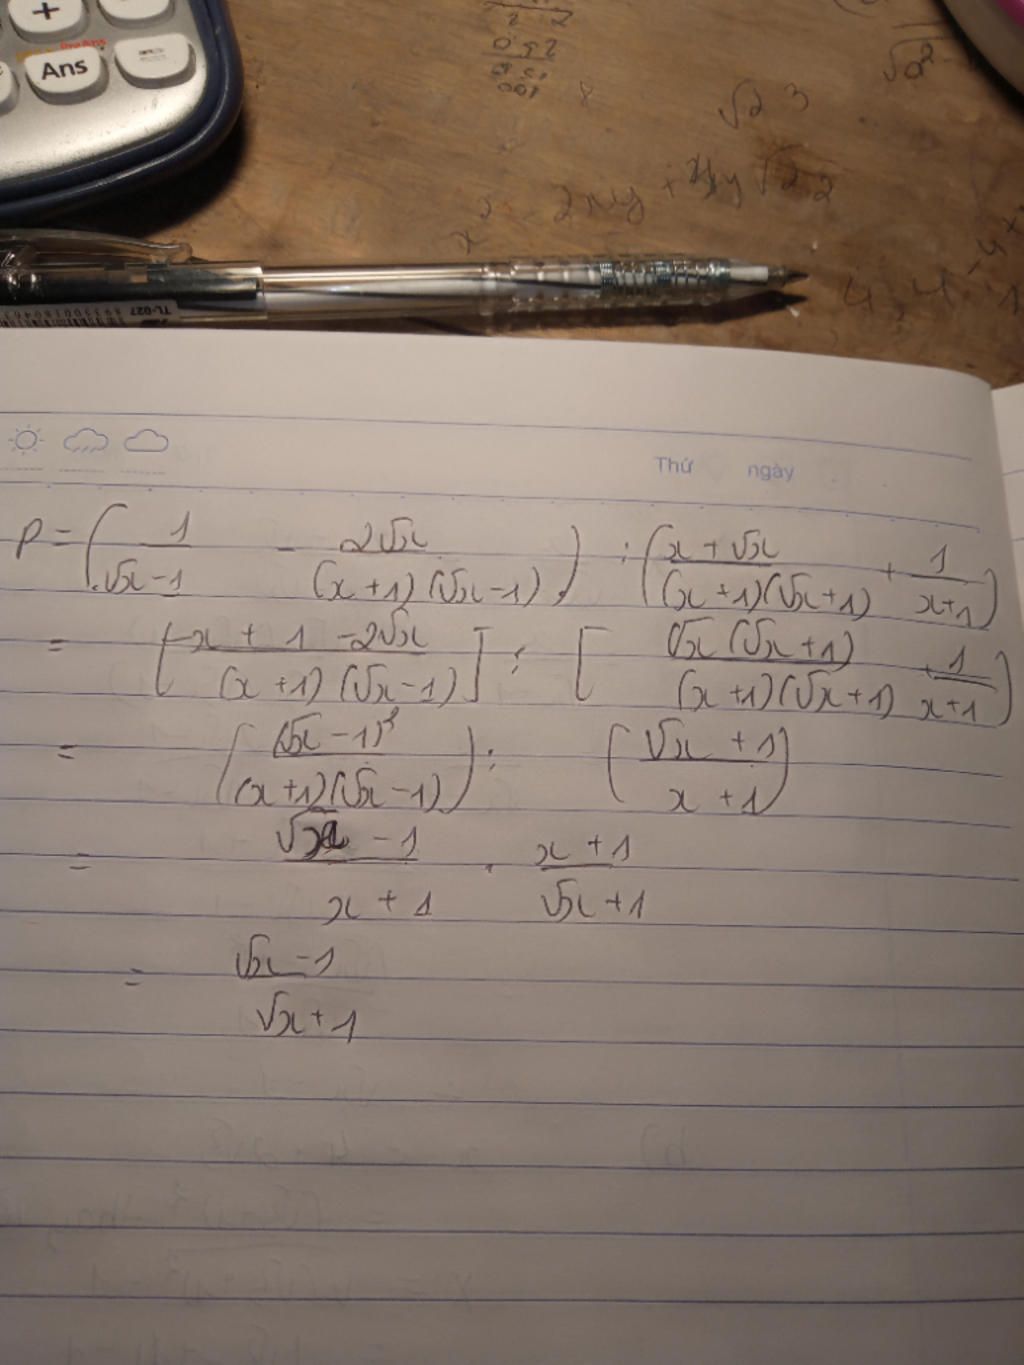 +
Ans
PreAns
=
2 2
√a²
√2 3
TL-027
Thứ ngày
P = ( 1/(√x - 1) - 2√x/((x + 1)(√x - 1)) ) : ( (x + √x)/((x + 1)(√x + 1)) + 1/(x + 1) )
= [ (x + 1 - 2√x)/((x + 1)(√x - 1)) ] : [ (√x(√x + 1))/((x + 1)(√x + 1)) + 1/(x + 1) )
= ( (√x - 1)²/((x + 1)(√x - 1)) ) : ( (√x + 1)/(x + 1) )
= (√x - 1)/(x + 1) . (x + 1)/(√x + 1)
= (√x - 1)/(√x + 1)